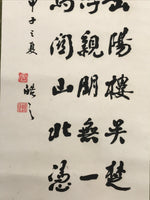 岳陽樓吳楚
字親朋無一
馬關山北憑
甲子之夏